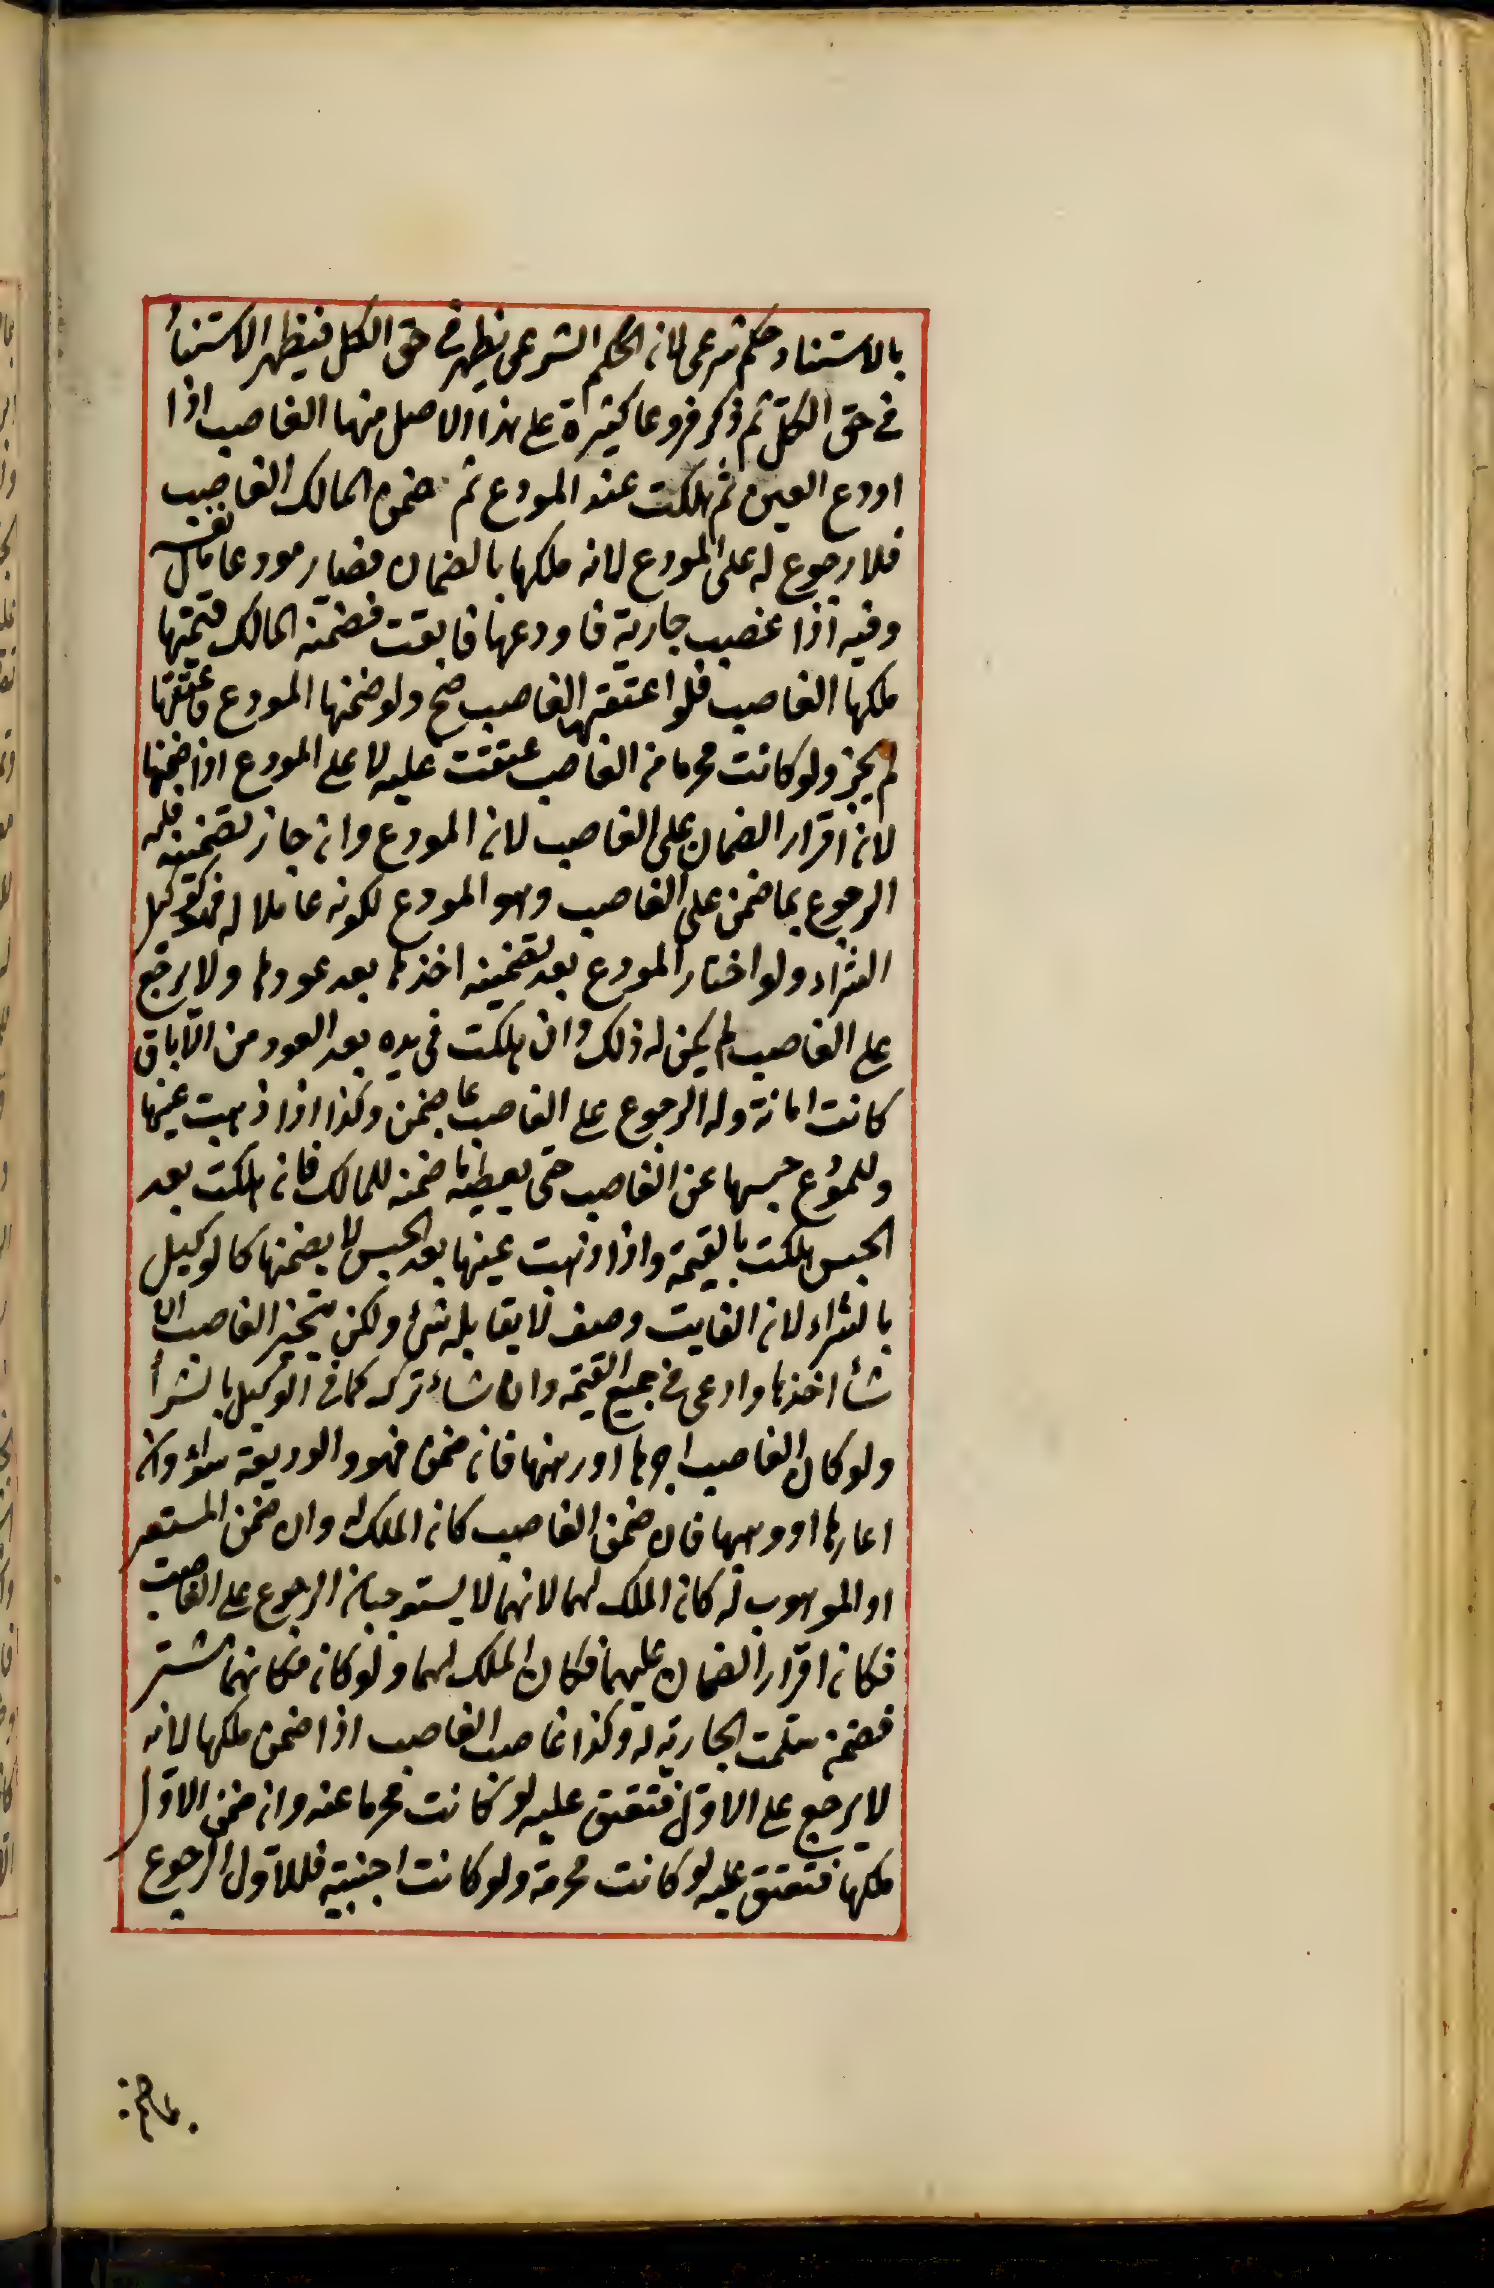 بالاستناد حكم شرعى لان الحكم الشرعى يظهر فى حق الكل فيظهر الاستناد
فى حق الكل ثم ذكر فروعا كثيرة على هذا الاصل منها الغاصب اذا
اودع العين ثم هلكت عند المودع ثم ضمن المالك الغاصب
فلا رجوع له على المودع لانه ملكها بالضمان فصار مودعا مال نفسه
وفيه اذا غصب جارية فاودعها فابقت فضمنه المالك قيمتها
ملكها الغاصب فلو اعتقها الغاصب صح ولو ضمنها المودع فاعتقها
لم يجز ولو كانت محرما من الغاصب عتقت عليه لا على المودع اذا ضمنها
لان اقرار الضمان على الغاصب لان المودع وان جاز تضمينه فله
الرجوع بما ضمن على الغاصب وهو المودع لكونه عاملا له فهو كوكيل
الشراء ولو اختار المودع بعد تضمينه اخذها بعد عودها ولا يرجع
على الغاصب لم يكن له ذلك وان هلكت فى يده بعد العود من الاباق
كانت امانة وله الرجوع على الغاصب بما ضمن وكذا اذا ذهبت عينها
وللمودع حبسها عن الغاصب حتى يعطيه ما ضمنه للمالك فان هلكت بعد
الحبس هلكت بالقيمة واذا ذهبت عينها بعد الحبس لا يضمنها كالوكيل
بالشراء لان الفايت وصف لا يقابله شئ ولكن يتخير الغاصب ان
شاء اخذها وادى جميع القيمة وان شاء ترك كما فى الوكيل بالشراء
ولو كان الغاصب اجرها او رهنها فان ضمن فهو والوديعة سواء وان
اعارها او وهبها فان ضمن الغاصب كان الملك له وان ضمن المستعير
او الموهوب له كان الملك لهما لانهما لا يستوجبان الرجوع على الغاصب
فكان اقرار الضمان عليهما فكان الملك لهما ولو كان مكانهما مشتر
فضمن سلمت الجارية له وكذا غاصب الغاصب اذا ضمن ملكها لانه
لا يرجع على الاول فتعتق عليه لو كانت محرما عنه وان ضمن الاول
ملكها فتعتق عليه لو كانت محرمة ولو كانت اجنبية فللاول الرجوع
بما ضمن